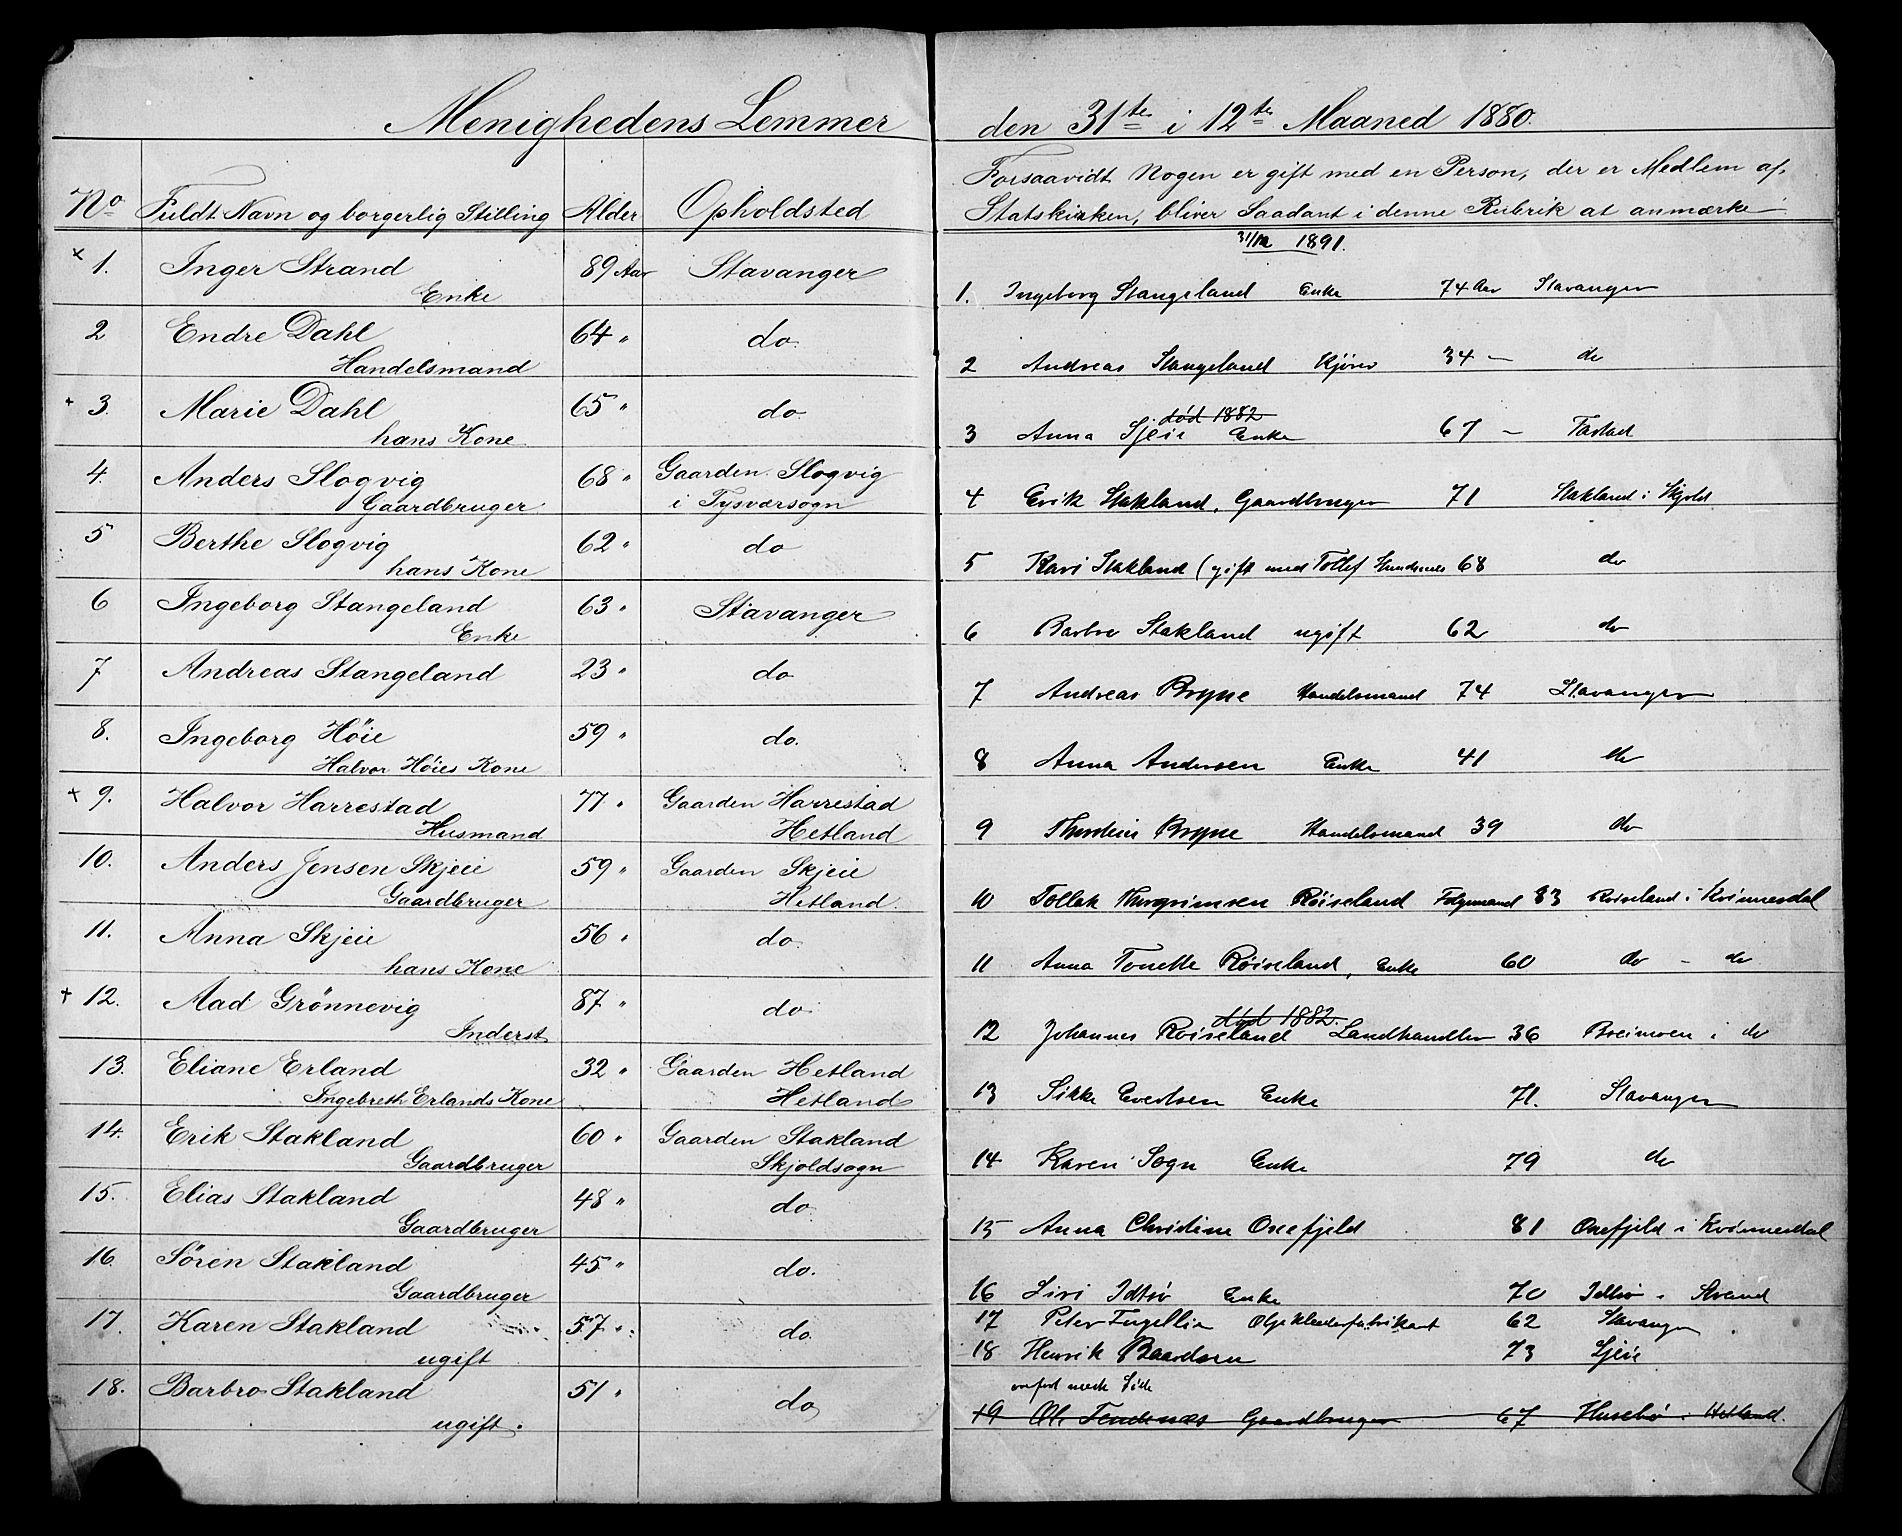 Menighedens Lemmer
No Fuldt Navn og borgerlig Stilling Alder Opholdsted
× 1. Inger Strand 89 Aar Stavanger
Enke
2 Endre Dahl 64 " do
Handelsmand
+ 3. Marie Dahl 65 " do
hans Kone
4. Anders Slogvig 68 " Gaarden Slogvig
Gaardbruger i Tysværsogn
5 Berthe Slogvig 62 " do
hans Kone
6 Ingeborg Stangeland 63 " Stavanger
Enke
7 Andreas Stangeland 23 " do
8. Ingeborg Höie 59 " do.
Halvor Höies Kone
+ 9. Halvor Harrestad 77 " Gaarden Harrestad
Husmand Hetland
10. Anders Jensen Skjeie 59 " Gaarden Skjeie
Gaardbruger Hetland
11. Anna Skjeie 56 " do
hans Kone
+ 12. Aad Grönnevig 87 " do
Inderst
13. Eliane Erland 32 " Gaarden Hetland
Ingebreth Erlands Kone Hetland
14. Erik Stakland 60 " Gaarden Stakland
Gaardbruger Skjoldsogn
15. Elias Stakland 48 " do
Gaardbruger
16. Sören Stakland 45 " do.
Gaardbruger
17. Karen Stakland 57 " do
ugift
18. Barbro Stakland 51 " do
ugift.
den 31te i 12te Maaned 1880.
Forsaavidt Nogen er gift med en Person, der er Medlem af
Statskirken, bliver Saadant i denne Rubrik at anmærke
31/12 1891.
1. Ingeborg Stangeland Enke 74 Aar Stavanger
2 Andreas Stangeland Kjører 34 – do
død 1882
3 Anna Sjeie Enke 67 – Tastad
4 Erik Stakland, Gaardbruger 71 Stakland i Skjold
5 Kari Stakland (gift med Tollef 68 do
6 Barbro Stakland ugift 62 do
7 Andreas Bryne Handelsmand 74 Stavanger
8 Anna Andersen Enke 41 do
9 Thorstein Bryne Handelsmand 39 do
10 Tollak Thorgrimsen Röiseland 83 Röiseland i Kvinnesdal
11 Anna Tonette Röiseland, Enke 60 do – do
død 1882.
12 Johannes Röiseland Landhandler 36 Breimoen i do
13 Sikke Evertsen Enke 71. Stavanger
14 Karen Sogn Enke 79 do
15 Anna Christine Osefjeld 81 Osefjeld i Kvinnesdal
16 Siri Idtsö Enke 70 Idtsö i Strand
17 Peter Oljeklædefabrikant 62 Stavanger
18 Henrik Baardsen 73 Sjeie
overført næste Side
19 Ol. Gaardbruger 67 Husebö i Hetland.